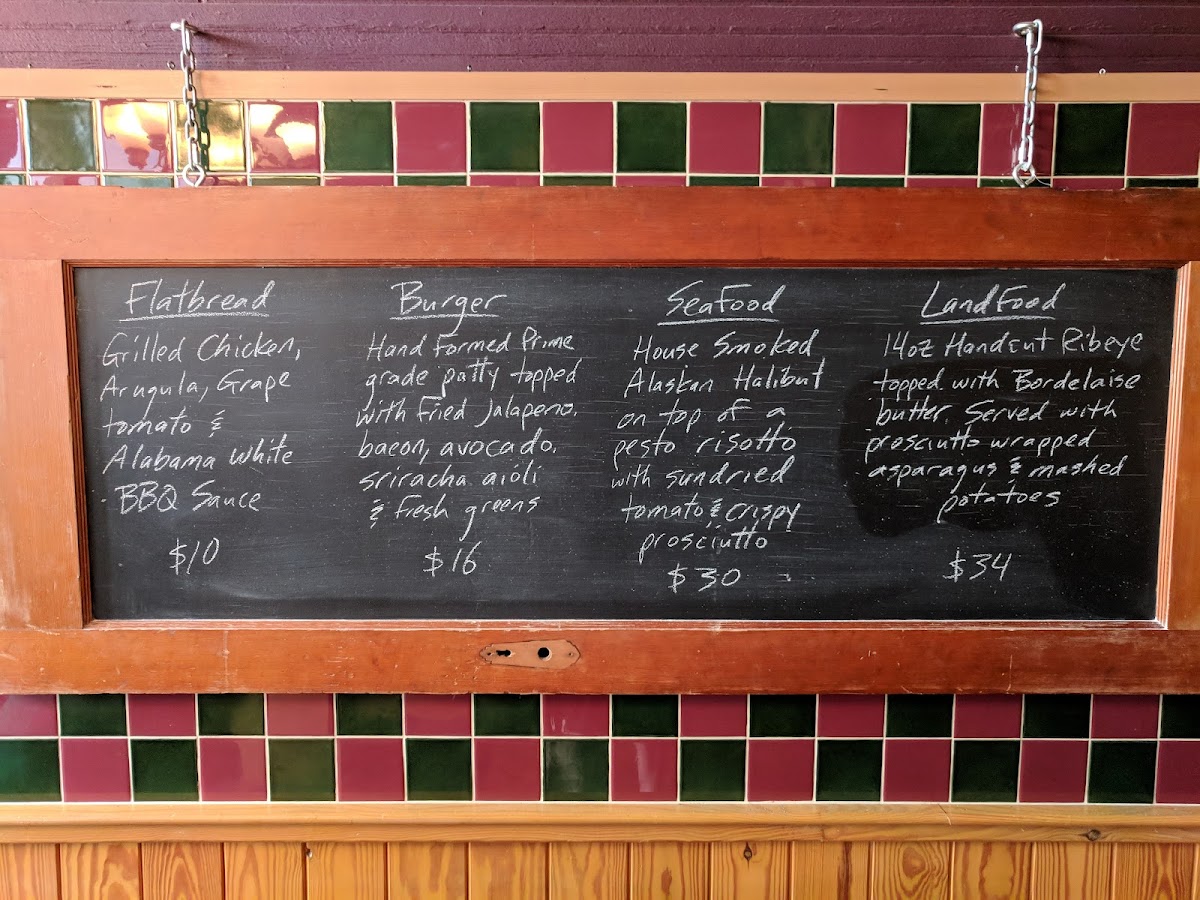 Flatbread
Grilled Chicken,
Arugula, Grape
tomato &
Alabama white
BBQ Sauce
$10
Burger
Hand Formed Prime
grade patty topped
with fried jalapeno,
bacon, avocado,
sriracha aióli
& fresh greens
$16
SeaFood
House Smoked
Alaskan Halibut
on top of a
pesto risotto
with sundried
tomato & crispy
prosciutto
$30
LandFood
14oz Handcut Ribeye
topped with Bordelaise
butter. Served with
prosciutto wrapped
asparagus & mashed
potatoes
$34